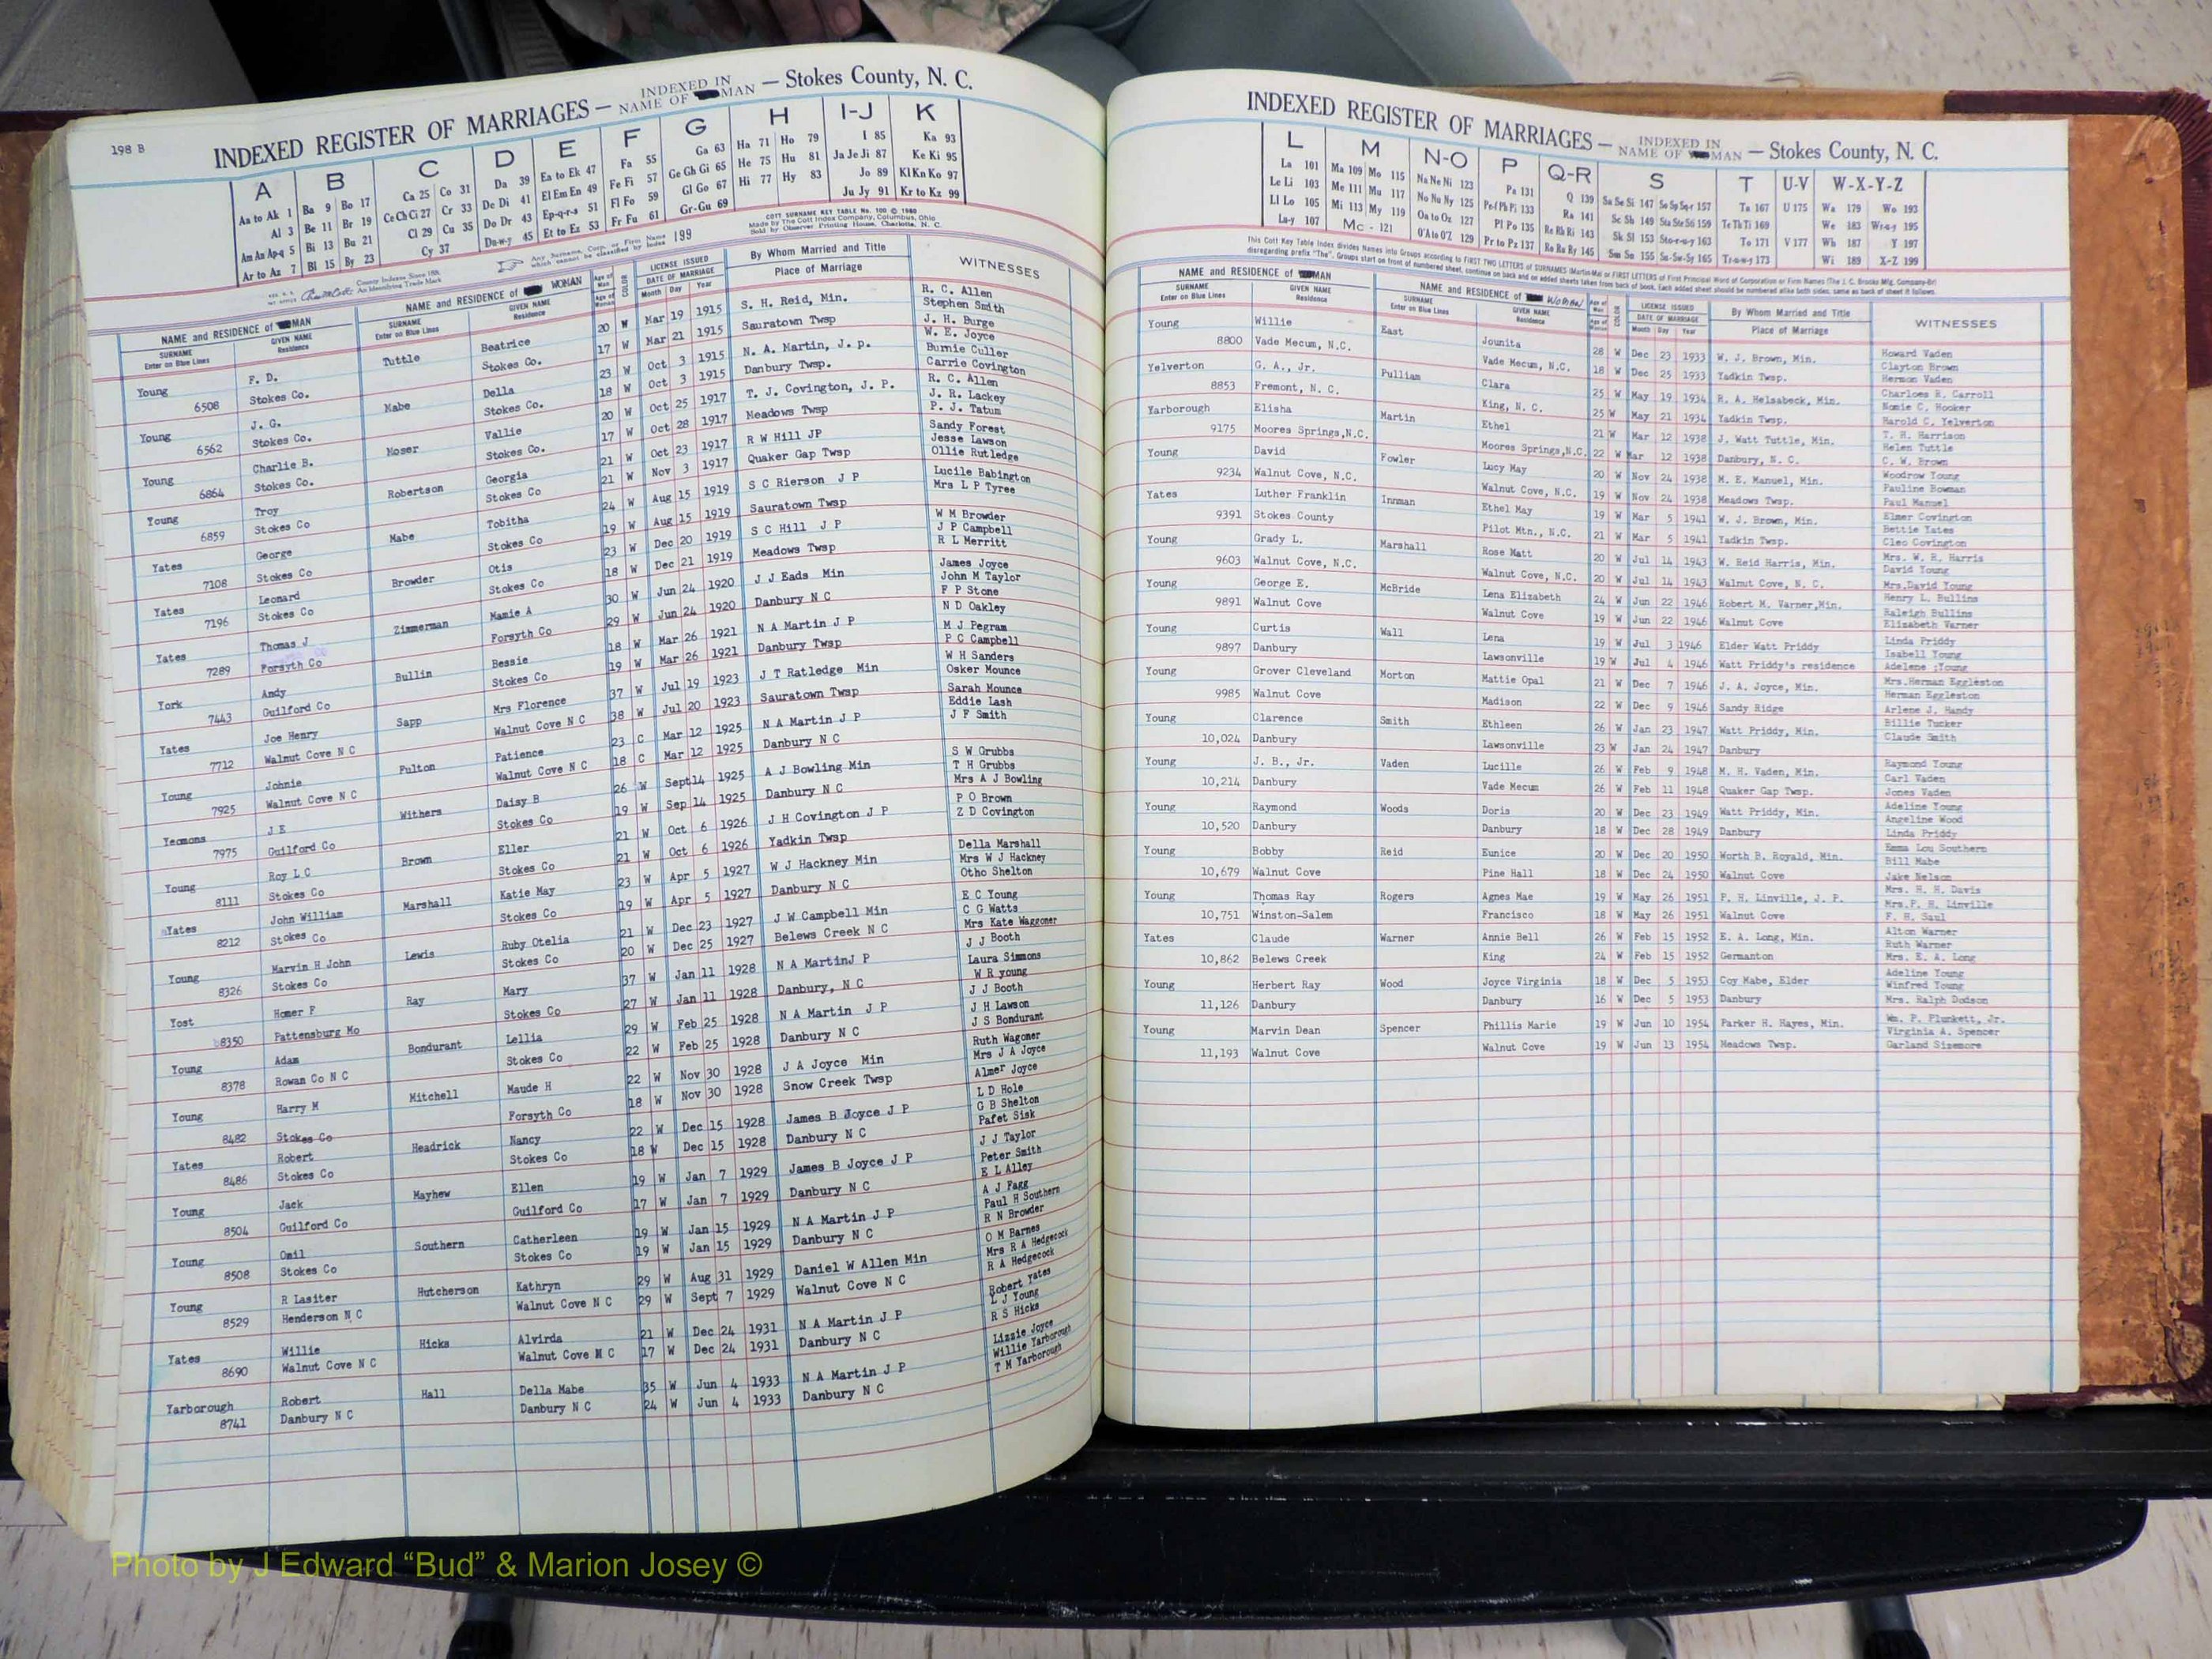 198 B
INDEXED REGISTER OF MARRIAGES — INDEXED IN NAME OF MAN — Stokes County, N. C.
A B C D E F G H I-J K
Aa to Ak 1 Ba 9 Bo 17 Ca 25 Co 31 Da 39 Ea to Ek 47 Fa 55 Ga 63 Ha 71 Ho 79 I 85 Ka 93
Al 3 Be 11 Br 19 Ce Ch Ci 27 Cr 33 De Di 41 El Em En 49 Fe Fi 57 Ge Gh Gi 65 He 75 Hu 81 Ja Je Ji 87 Ke Ki 95
Am An Ap-q 5 Bi 13 Bu 21 Cl 29 Cu 35 Do Dr 43 Ep-q-r-s 51 Fl Fo 59 Gl Go 67 Hi 77 Hy 83 Jo 89 Kl Kn Ko 97
Ar to Az 7 Bl 15 By 23 Cy 37 Du-w-y 45 Et to Ez 53 Fr Fu 61 Gr-Gu 69 Ju Jy 91 Kr to Kz 99
Any Surname, Corp. or Firm Name which cannot be classified by Index 199
COTT SURNAME KEY TABLE No. 100 © 1960
Made by The Cott Index Company, Columbus, Ohio
Sold by Observer Printing House, Charlotte, N. C.
NAME and RESIDENCE of MAN NAME and RESIDENCE of WOMAN Age of Man Age of Woman COLOR LICENSE ISSUED DATE OF MARRIAGE By Whom Married and Title WITNESSES
SURNAME Enter on Blue Lines GIVEN NAME Residence SURNAME Enter on Blue Lines GIVEN NAME Residence Month Day Year Place of Marriage
Young F. D. Tuttle Beatrice 20 W Mar 19 1915 S. H. Reid, Min. R. C. Allen
6508 Stokes Co. Stokes Co. 17 W Mar 21 1915 Sauratown Twsp Stephen Smith
J. H. Burge
Young J. G. Mabe Della 23 W Oct 3 1915 N. A. Martin, J. p. W. E. Joyce
6562 Stokes Co. Stokes Co. 18 W Oct 3 1915 Danbury Twsp. Burnie Culler
Carrie Covington
Young Charlie B. Moser Vallie 20 W Oct 25 1917 T. J. Covington, J. P. R. C. Allen
6864 Stokes Co. Stokes Co. 17 W Oct 28 1917 Meadows Twsp J. R. Lackey
P. J. Tatum
Young Troy Robertson Georgia 21 W Oct 23 1917 R W Hill JP Sandy Forest
6859 Stokes Co Stokes Co 21 W Nov 3 1917 Quaker Gap Twsp Jesse Lawson
Ollie Rutledge
Yates George Mabe Tobitha 24 W Aug 15 1919 S C Rierson J P Lucile Babington
7108 Stokes Co Stokes Co 19 W Aug 15 1919 Sauratown Twsp Mrs L P Tyree
Yates Leonard Browder Otis 23 W Dec 20 1919 S C Hill J P W M Browder
7196 Stokes Co Stokes Co 18 W Dec 21 1919 Meadows Twsp J P Campbell
R L Merritt
Yates Thomas J Zimmerman Mamie A 30 W Jun 24 1920 J J Eads Min James Joyce
7289 Forsyth Co Forsyth Co 29 W Jun 24 1920 Danbury N C John M Taylor
F P Stone
York Andy Bullin Bessie 18 W Mar 26 1921 N A Martin J P N D Oakley
7443 Guilford Co Stokes Co 19 W Mar 26 1921 Danbury Twsp M J Pegram
P C Campbell
Yates Joe Henry Sapp Mrs Florence 37 W Jul 19 1923 J T Ratledge Min W H Sanders
7712 Walnut Cove N C Walnut Cove N C 38 W Jul 20 1923 Sauratown Twsp Osker Mounce
Sarah Mounce
Young Johnie Fulton Patience 23 C Mar 12 1925 N A Martin J P Eddie Lash
7925 Walnut Cove N C Walnut Cove N C 18 C Mar 12 1925 Danbury N C J F Smith
Yeomons J E Withers Daisy B 26 W Sept 14 1925 A J Bowling Min S W Grubbs
7975 Guilford Co Stokes Co 19 W Sep 14 1925 Danbury N C T H Grubbs
Mrs A J Bowling
Young Roy L C Brown Eller 21 W Oct 6 1926 J H Covington J P P O Brown
8111 Stokes Co Stokes Co 21 W Oct 6 1926 Yadkin Twsp Z D Covington
Yates John William Marshall Katie May 23 W Apr 5 1927 W J Hackney Min Della Marshall
8212 Stokes Co Stokes Co 19 W Apr 5 1927 Danbury N C Mrs W J Hackney
Otho Shelton
Young Marvin H John Lewis Ruby Otelia 21 W Dec 23 1927 J W Campbell Min E C Young
8326 Stokes Co Stokes Co 20 W Dec 25 1927 Belews Creek N C C G Watts
Mrs Kate Waggoner
Yost Homer F Ray Mary 37 W Jan 11 1928 N A MartinJ P J J Booth
8350 Pattensburg Mo Stokes Co 27 W Jan 11 1928 Danbury, N C Laura Simmons
W R young
Young Adam Bondurant Lellia 29 W Feb 25 1928 N A Martin J P J J Booth
8378 Rowan Co N C Stokes Co 22 W Feb 25 1928 Danbury N C J H Lawson
J S Bondurant
Young Harry M Mitchell Maude H 22 W Nov 30 1928 J A Joyce Min Ruth Wagoner
8482 Stokes Co Forsyth Co 18 W Nov 30 1928 Snow Creek Twsp Mrs J A Joyce
Almer Joyce
Yates Robert Headrick Nancy 22 W Dec 15 1928 James B Joyce J P L D Hole
8486 Stokes Co Stokes Co 18 W Dec 15 1928 Danbury N C G B Shelton
Pafet Sisk
Young Jack Mayhew Ellen 19 W Jan 7 1929 James B Joyce J P J J Taylor
8504 Guilford Co Guilford Co 17 W Jan 7 1929 Danbury N C Peter Smith
E L Alley
Young Omil Southern Catherleen 19 W Jan 15 1929 N A Martin J P A J Fagg
8508 Stokes Co Stokes Co 19 W Jan 15 1929 Danbury N C Paul H Southern
R N Browder
Young R Lasiter Hutcherson Kathryn 29 W Aug 31 1929 Daniel W Allen Min O M Barnes
8529 Henderson N C Walnut Cove N C 29 W Sept 7 1929 Walnut Cove N C Mrs R A Hedgecock
R A Hedgecock
Yates Willie Hicks Alvirda 21 W Dec 24 1931 N A Martin J P Robert Yates
8690 Walnut Cove N C Walnut Cove N C 17 W Dec 24 1931 Danbury N C L J Young
R S Hicks
Yarborough Robert Hall Della Mabe 35 W Jun 4 1933 N A Martin J P Lizzie Joyce
8741 Danbury N C Danbury N C 24 W Jun 4 1933 Danbury N C Willie Yarborough
T M Yarborough
INDEXED REGISTER OF MARRIAGES — INDEXED IN NAME OF MAN — Stokes County, N. C.
L M N-O P Q-R S T U-V W-X-Y-Z
La 101 Ma 109 Mo 115 Na Ne Ni 123 Pa 131 Q 139 Sa Se Si 147 So Sp Sq-r 157 Ta 167 U 175 Wa 179 Wo 193
Le Li 103 Me 111 Mu 117 No Nu Ny 125 Pe-f Ph Pi 133 Ra 141 Sc Sh 149 Sta Ste Sti 159 Te Th Ti 169 We 183 Wr-u-y 195
Ll Lo 105 Mi 113 My 119 Oa to Oz 127 Pl Po 135 Re Rh Ri 143 Sk Sl 153 Sto-r-u-y 163 To 171 V 177 Wh 187 Y 197
Lu-y 107 Mc - 121 O'A to O'Z 129 Pr to Pz 137 Ro Ru Ry 145 Sm Sn 155 Su-Sw-Sy 165 Tr-u-w-y 173 Wi 189 X-Z 199
This Cott Key Table Index divides Names into Groups according to FIRST TWO LETTERS of SURNAMES (Martin-Ma) or FIRST LETTERS of First Principal Word of Corporation or Firm Names (The J. C. Brooks Mfg. Company-Br)
disregarding prefix "The". Groups start on front of numbered sheet, continue on back and on added sheets taken from back of book. Each added sheet should be numbered alike both sides, same as back of sheet it follows.
NAME and RESIDENCE of MAN NAME and RESIDENCE of WOMAN Age of Man Age of Woman COLOR LICENSE ISSUED DATE OF MARRIAGE By Whom Married and Title WITNESSES
SURNAME Enter on Blue Lines GIVEN NAME Residence SURNAME Enter on Blue Lines GIVEN NAME Residence Month Day Year Place of Marriage
Young Willie East Jounita 28 W Dec 23 1933 W. J. Brown, Min. Howard Vaden
8800 Vade Mecum, N.C. Vade Mecum, N.C. 18 W Dec 25 1933 Yadkin Twsp. Clayton Brown
Hermon Vaden
Yelverton G. A., Jr. Pulliam Clara 25 W May 19 1934 R. A. Helsabeck, Min. Charloes R. Carroll
8853 Fremont, N. C. King, N. C. 25 W May 21 1934 Yadkin Twsp. Nomie C. Hooker
Harold C. Yelverton
Yarborough Elisha Martin Ethel 21 W Mar 12 1938 J. Watt Tuttle, Min. T. H. Harrison
9175 Moores Springs,N.C. Moores Springs,N.C. 22 W Mar 12 1938 Danbury, N. C. Helen Tuttle
C. W. Brown
Young David Fowler Lucy May 20 W Nov 24 1938 M. E. Manuel, Min. Woodrow Young
9234 Walnut Cove, N.C. Walnut Cove, N.C. 19 W Nov 24 1938 Meadows Twsp. Pauline Bowman
Paul Manuel
Yates Luther Franklin Innman Ethel May 19 W Mar 5 1941 W. J. Brown, Min. Elmer Covington
9391 Stokes County Pilot Mtn., N.C. 21 W Mar 5 1941 Yadkin Twsp. Bettie Yates
Cleo Covington
Young Grady L. Marshall Rose Matt 20 W Jul 14 1943 W. Reid Harris, Min. Mrs. W. R. Harris
9603 Walnut Cove, N.C. Walnut Cove, N.C. 20 W Jul 14 1943 Walnut Cove, N. C. David Young
Mrs.David Young
Young George E. McBride Lena Elizabeth 24 W Jun 22 1946 Robert M. Varner,Min. Henry L. Bullins
9891 Walnut Cove Walnut Cove 19 W Jun 22 1946 Walnut Cove Raleigh Bullins
Elizabeth Varner
Young Curtis Wall Lena 19 W Jul 3 1946 Elder Watt Priddy Linda Priddy
9897 Danbury Lawsonville 19 W Jul 4 1946 Watt Priddy's residence Isabell Young
Adelene ;Young
Young Grover Cleveland Morton Mattie Opal 21 W Dec 7 1946 J. A. Joyce, Min. Mrs.Herman Eggleston
9985 Walnut Cove Madison 22 W Dec 9 1946 Sandy Ridge Herman Eggleston
Arlene J. Handy
Young Clarence Smith Ethleen 26 W Jan 23 1947 Watt Priddy, Min. Billie Tucker
10,024 Danbury Lawsonville 23 W Jan 24 1947 Danbury Claude Smith
Young J. B., Jr. Vaden Lucille 26 W Feb 9 1948 M. H. Vaden, Min. Raymond Young
10,214 Danbury Vade Mecum 26 W Feb 11 1948 Quaker Gap Twsp. Carl Vaden
Jones Vaden
Young Raymond Woods Doris 20 W Dec 23 1949 Watt Priddy, Min. Adeline Young
10,520 Danbury Danbury 18 W Dec 28 1949 Danbury Angeline Wood
Linda Priddy
Young Bobby Reid Eunice 20 W Dec 20 1950 Worth B. Royald, Min. Emma Lou Southern
10,679 Walnut Cove Pine Hall 18 W Dec 24 1950 Walnut Cove Bill Mabe
Jake Nelson
Young Thomas Ray Rogers Agnes Mae 19 W May 26 1951 P. H. Linville, J. P. Mrs. H. H. Davis
10,751 Winston-Salem Francisco 18 W May 26 1951 Walnut Cove Mrs.P. H. Linville
F. H. Saul
Yates Claude Warner Annie Bell 26 W Feb 15 1952 E. A. Long, Min. Alton Warner
10,862 Belews Creek King 24 W Feb 15 1952 Germanton Ruth Warner
Mrs. E. A. Long
Young Herbert Ray Wood Joyce Virginia 18 W Dec 5 1953 Coy Mabe, Elder Adeline Young
11,126 Danbury Danbury 16 W Dec 5 1953 Danbury Winfred Young
Mrs. Ralph Dodson
Young Marvin Dean Spencer Phillis Marie 19 W Jun 10 1954 Parker H. Hayes, Min. Wm. P. Plunkett, Jr.
11,193 Walnut Cove Walnut Cove 19 W Jun 13 1954 Meadows Twsp. Virginia A. Spencer
Garland Sizemore
Photo by J Edward “Bud” & Marion Josey ©